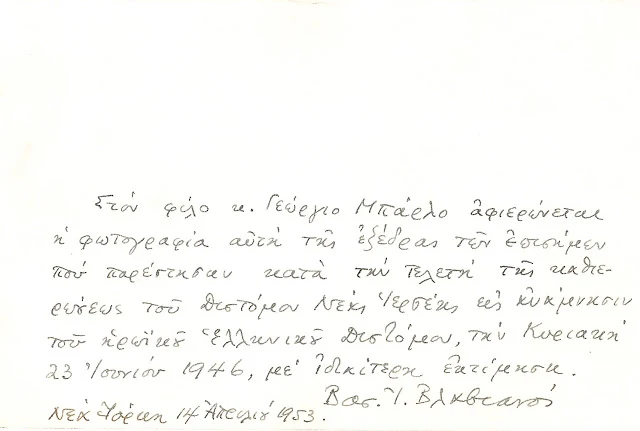 Στὸν φίλο κ. Γεώργιο Μπάρλο ἀφιερώνεται
ἡ φωτογραφία αὐτὴ τῆς ἐξέδρας τῶν ἐπισήμων
ποὺ παρέστησαν κατὰ τὴν τελετὴ τῆς καθιε-
ρώσεως τοῦ Διστόμου Νέας Ἱερσέης εἰς ἀνάμνησιν
τοῦ ἡρωϊκοῦ Ἑλληνικοῦ Διστόμου, τὴν Κυριακὴ
23 Ἰουνίου 1946, μὲ ἰδιαίτερη ἐκτίμηση.
Βασ. Ἰ. Βλαβιανός
Νέα Ὑόρκη 14 Ἀπριλίου 1953.